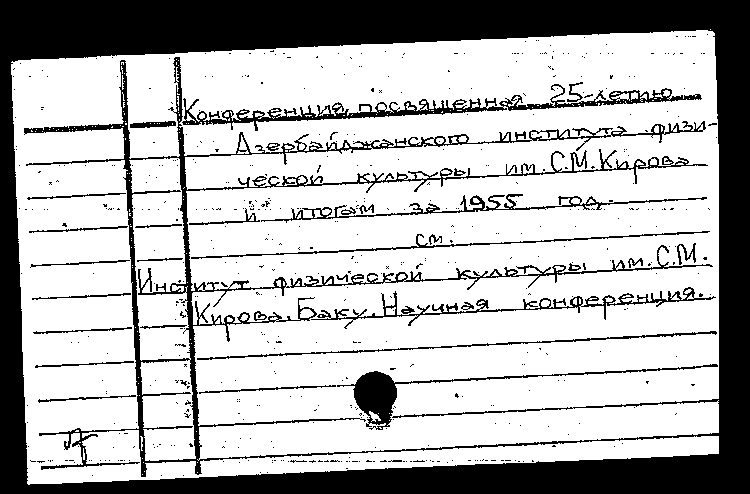 Конференция, посвященная 25-летию
Азербайджанского института физи-
ческой культуры им. С.М. Кирова
и итогам за 1955 год.
см.
Институт физической культуры им. С.М.
Кирова. Баку. Научная конференция.